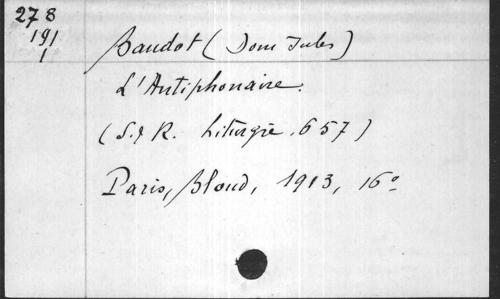 278
191
1
Baudot (Dom Jules)
L'Antiphonaire.
(S. & R. Liturgie. 657)
Paris, Bloud, 1913, 16°